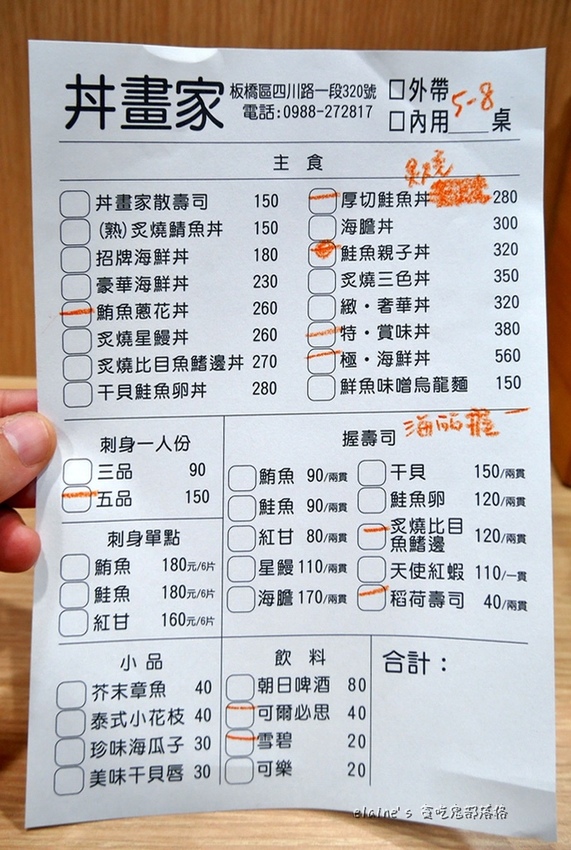 丼畫家 板橋區四川路一段320號 電話:0988-272817
□外帶
□內用___桌
5-8
主食
丼畫家散壽司 150
(熟)炙燒鯖魚丼 150
招牌海鮮丼 180
豪華海鮮丼 230
鮪魚蔥花丼 260
炙燒星鰻丼 260
炙燒比目魚鰭邊丼 270
干貝鮭魚卵丼 280
厚切鮭魚丼 280
海膽丼 300
鮭魚親子丼 320
炙燒三色丼 350
緻・奢華丼 320
特・賞味丼 380
極・海鮮丼 560
鮮魚味噌烏龍麵 150
刺身一人份
三品 90
五品 150
刺身單點
鮪魚 180元/6片
鮭魚 180元/6片
紅甘 160元/6片
握壽司
鮪魚 90/兩貫
鮭魚 90/兩貫
紅甘 80/兩貫
星鰻 110/兩貫
海膽 170/兩貫
干貝 150/兩貫
鮭魚卵 120/兩貫
炙燒比目
魚鰭邊 120/兩貫
天使紅蝦 110/一貫
稻荷壽司 40/兩貫
小品
芥末章魚 40
泰式小花枝 40
珍味海瓜子 30
美味干貝唇 30
飲料
朝日啤酒 80
可爾必思 40
雪碧 20
可樂 20
合計：
elaine's 貪吃鬼部落格